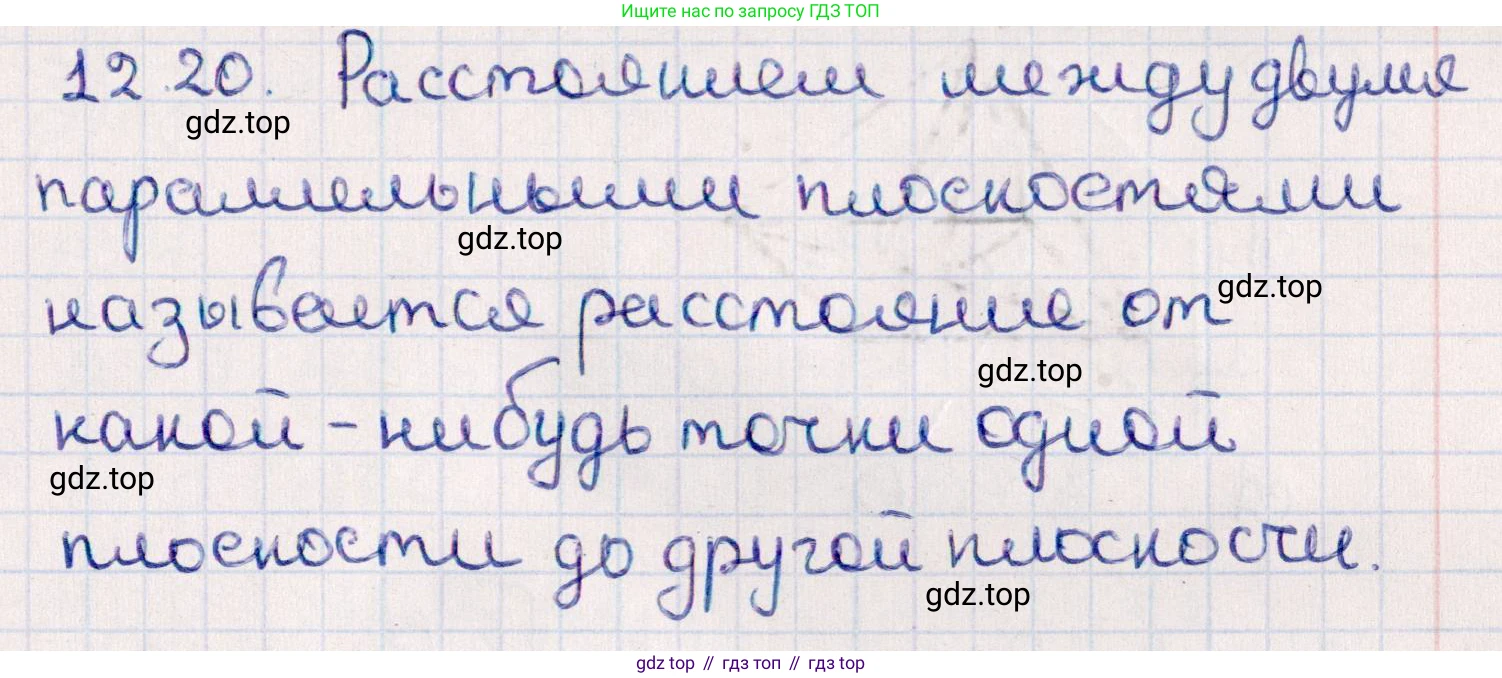 Ищите нас по запросу ГДЗ ТОП
12.20. Расстоянием между двумя
gdz.top
параллельными плоскостями
gdz.top
называется расстояние от
gdz.top
gdz.top
какой-нибудь точки одной
gdz.top
плоскости до другой плоскости.
gdz.top
gdz top // гдз топ // гдз top